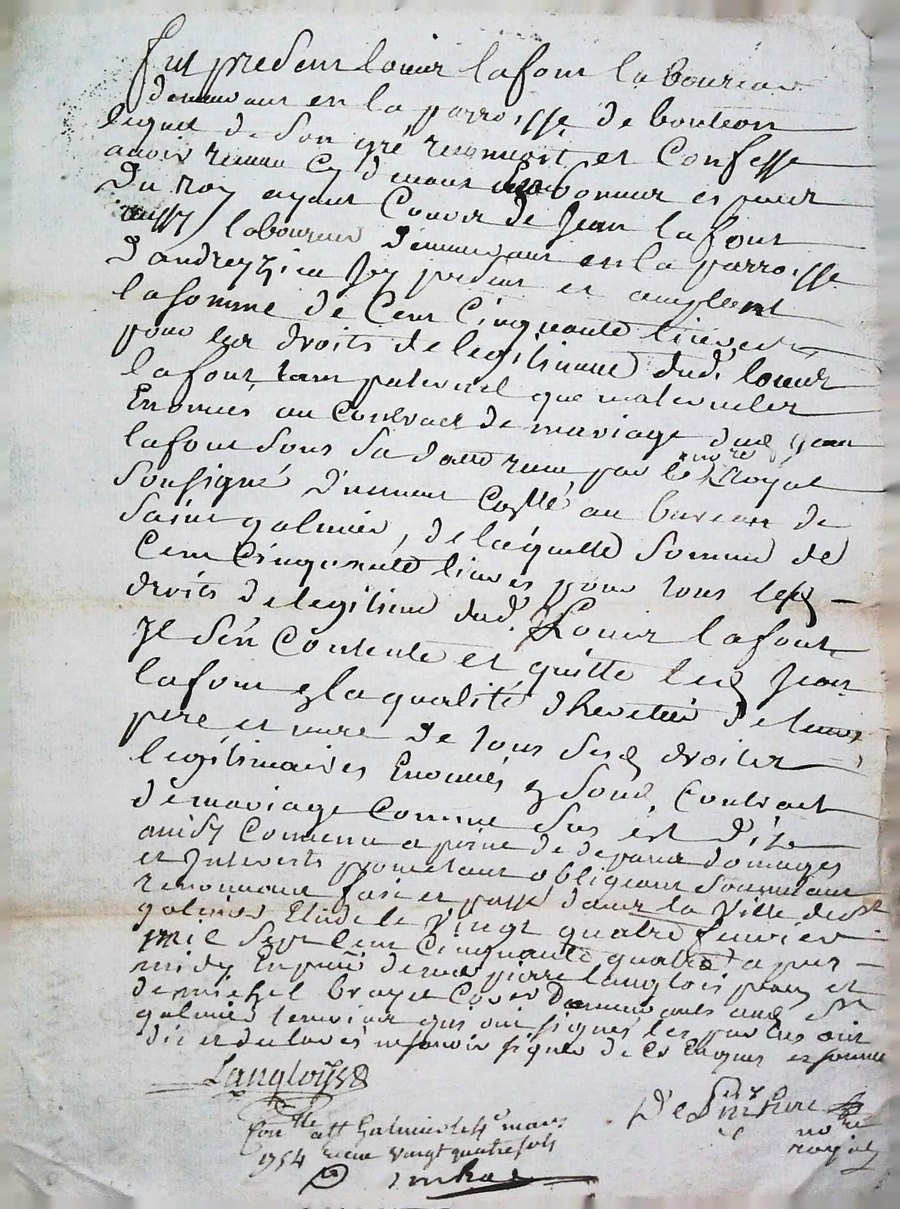 fut present louis lafont laboureur
demeurant en la parroisse de bouteon
lequel de son gré reconnoit et Confesse
avoir receu Cy devant en bonnes es peces
du roy ayant Cours de Jean lafont
aussy laboureur demeurant en la parroisse
d'andrezieu Icy present et acceptant
la somme de Cent Cinquante livres
pour les droits de legitimme dud. louis
lafont, tant paternel que maternelles
Enoncés au Contract de mariage dud Jean
lafont sous sa datte receu par le nore Royal
soussigné d'hument Collé au bureau de
saint galmier, de laquelle somme de
Cent Cinquante livres pour tous lesd
droits de legitime dud. Louis lafont
Il s'en Contente et quitte led Jean
lafont en la qualité d'heretier de leurs
pere et mere de tous sesd droites
legitimaires Enoncés en sond. Contract
de mariage Comme sus est dit
ainsy Convenu a peine de depans domages
et Interests prometant obligeant soumetant
renonceant fait et passé dans la ville de st
galmier Etude le vingt quatre fevrier
mil sept Cent Cinquante quatre apres
midy En pnce de me pierre langlois et
de michel demeurants aud St
galmier temoins qui ont signés les parties ont
dit et declaré ne scavoir signer de Ce Enquis et sommé
Langloise
nore
royal
Conlle a st Galmier le 4e mars
1754 receu vingt quatre sols